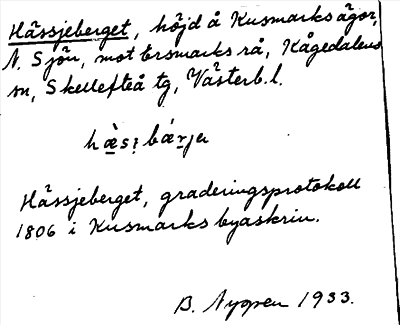 Hässjeberget, höjd å Kusmarks ägor,
N. Sjön, mot Ersmarks rå, Kågedalens
sn, Skellefteå tg, Västerb. l.
Hässjeberget, graderingsprotokoll
1806 i Kusmarks byaskrin.
B. Nygren 1933.